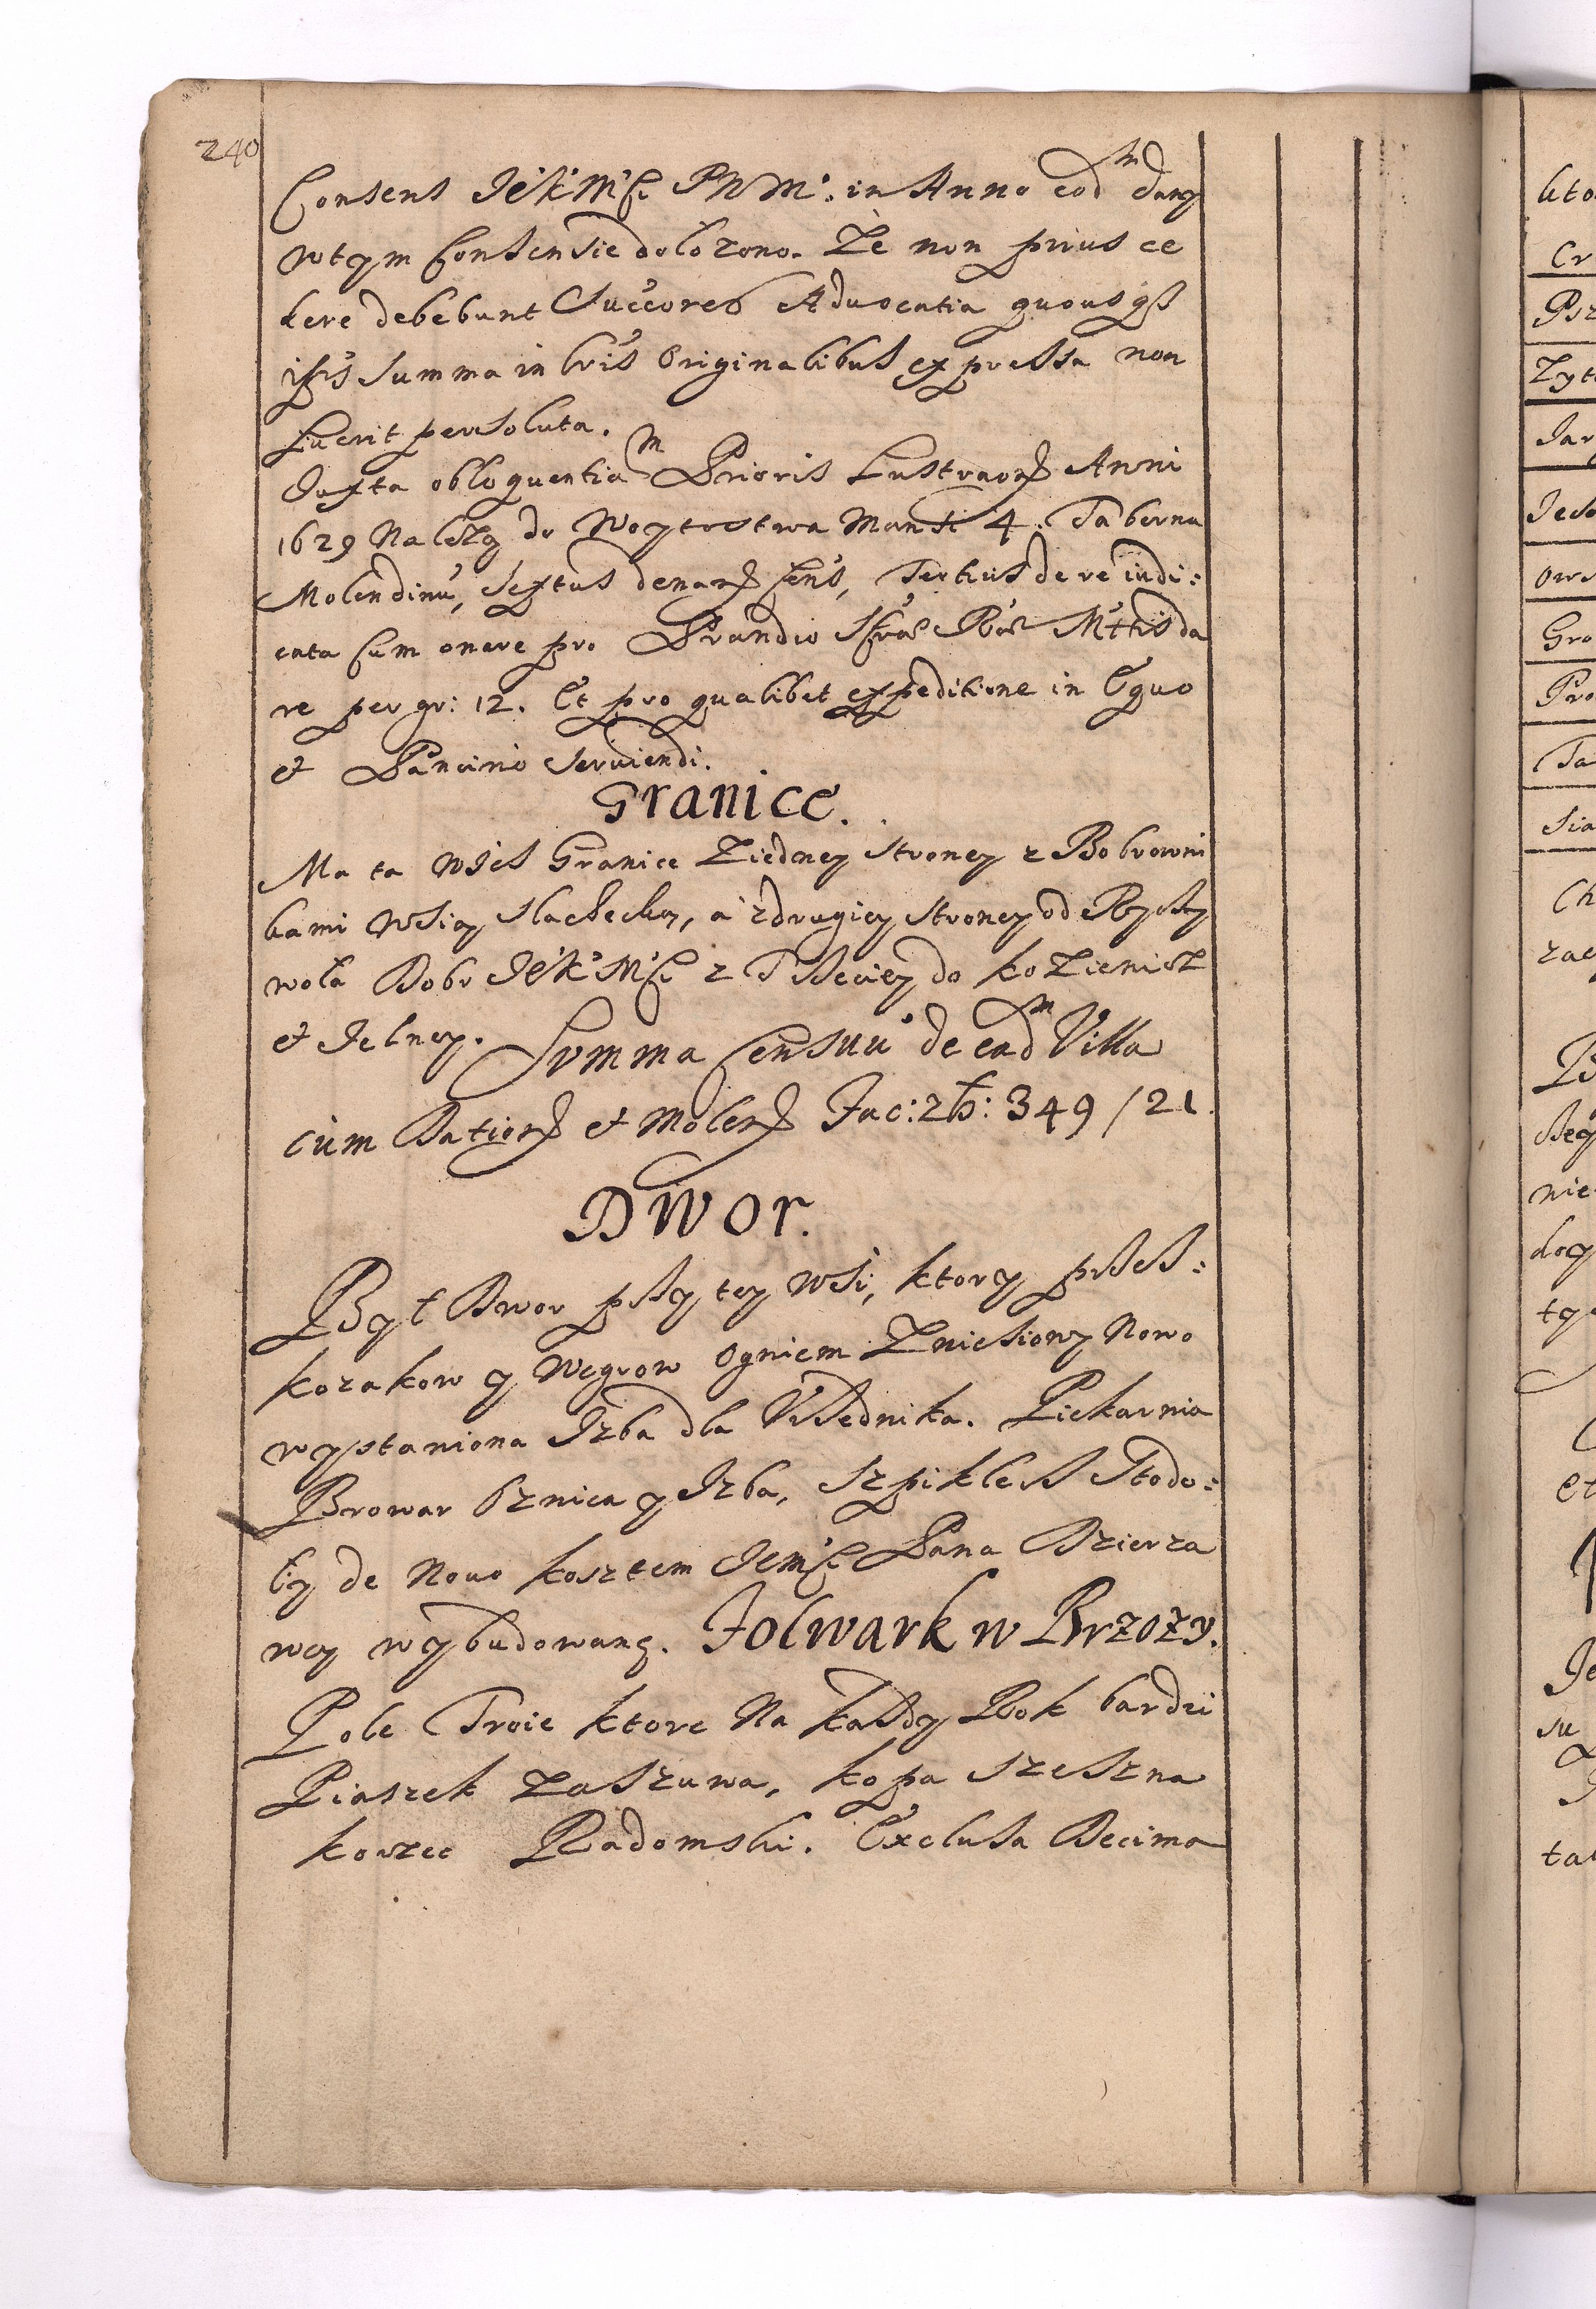 240
Consens JéKMſci PNM: in Anno eodm dany
w tym Consensie dolożono. Że non prius ce
dere debebunt Succores Aduocatia quousq3
ipsis Summa in lris Originalibus expressa non
fuerit persoluta.
Juxta obloquentiam Prioris Lustraor Anni
1629 Należą do Woytostwa Mansi 4. Taberna
Molendinu, Sextus denar Cens, Tertius de re iudi:
cata Cum onere pro Prandio Sfrae Rae Mttis da
re per gr: 12. Et pro qualibet expeditione in Equo
et Pancirio Seruiendi.
Granice.
Ma ta wieś Granice Ziedney strony z Bobrowni
kami wsią slachecką, á z drugiey strony od Ryczy
wołá Dobr JéKMſci z Trzeciey do Kozienicz
et Jelney. Summa Censuu de eadm Villa
cum Dation et Molen Fac: zł: 349/21
DWOr.
Był Dwor przy tey wsi, ktory przes:
Kozakow y Węgrow Ogniem Zniesiony Nowo
wystawiona Izba dla Vrzednika. Piekarnia
Browar Oznica y Izba, Szpiklerz Stodo:
ły de Nouo kosztem Jemſci Pana Dzierza
wcy wybudowane. Folwark w Brzozy.
Pole Troie ktore Na każdy Rok bardzi
Piaszek Zaszuwa, kopa Szeszna
korzec Radomski. Exclusa Decima